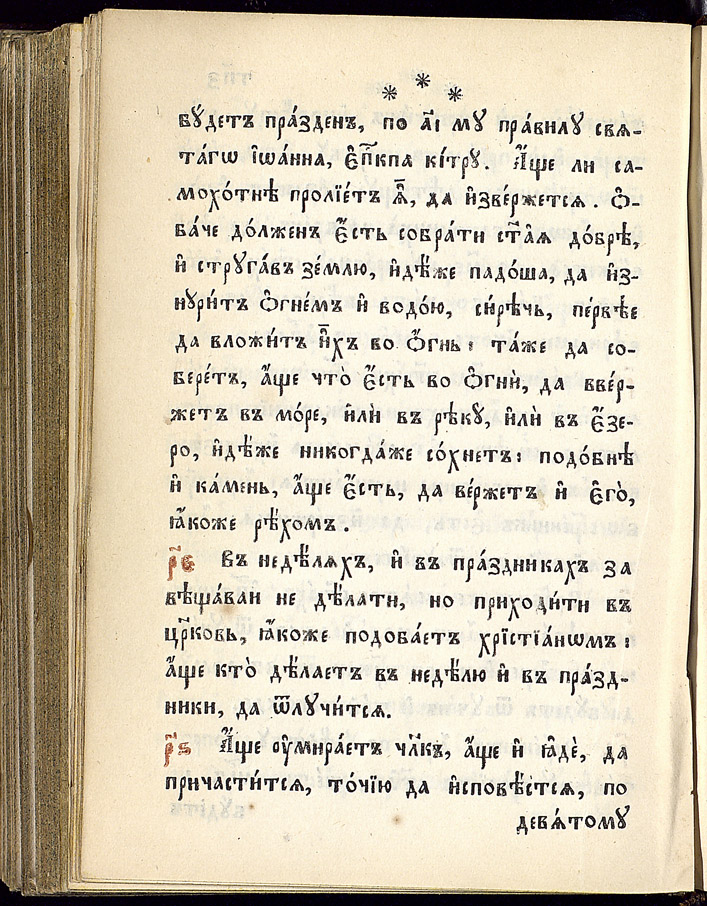 * * *
бꙋ́детъ пра́зденъ, по а҃і мꙋ пра́вилꙋ свѧ-
та́гѡ і҆ѡа́нна, є҆пⷭ҇кпа кі́трꙋ. А҆́ще ли са-
мохо́тнѣ пролїе́тъ ѧ҆̀, да и҆зве́ржетсѧ. Ѻ҆-
ба́че до́лженъ є҆́сть собра́ти ст҃а̑ѧ до́брѣ,
и҆ стрꙋга́въ зе́млю, и҆дѣ́же падо́ша, да и҆з-
нꙋри́тъ ѻ҆гне́мъ и҆ водо́ю, си́рѣчь, пе́рвѣе
да вложи́тъ и҆̀хъ во ѻ҆́гнь: та́же да со-
бере́тъ, а҆́ще что̀ є҆́сть во ѻ҆гнѝ, да вве́р-
жетъ въ мо́ре, и҆лѝ въ рѣ́кꙋ, и҆лѝ въ є҆́зе-
ро, и҆дѣ́же никогда́же со́хнетъ: подо́бнѣ
и҆ ка́мень, а҆́ще є҆́сть, да ве́ржетъ и҆ є҆го̀,
ꙗ҆́коже рѣ́хомъ.
р҃е Въ недѣ́лѧхъ, и҆ въ пра́здникахъ за
вѣща́ваи не дѣ́лати, но приходи́ти въ
цр҃ковь, ꙗ҆́коже подоба́етъ хрїстїа́нѡмъ:
а҆́ще кто̀ дѣ́лаетъ въ недѣ́лю и҆ въ пра́зд-
ники, да ѿлꙋчи́тсѧ.
р҃ѕ А҆́ще ᲂу҆мира́етъ чл҃къ, а҆́ще и҆ ꙗ҆дѐ, да
причасти́тсѧ, то́чїю да и҆сповѣ́стсѧ, по
девѧ́томꙋ